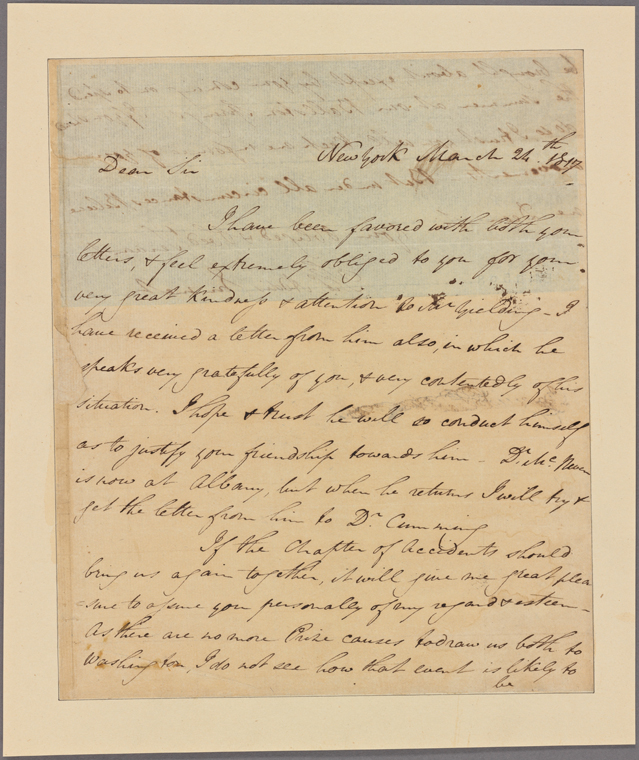 New York March 24th 1817
Dear Sir
I have been favored with both your
letters, & feel extremely obliged to you for your
very great kindness & attention to Mr Yielding - I
have received a letter from him also, in which he
speaks very gratefully of you, & very contentedly of his
situation. I hope & trust he will so conduct himself
as to justify your friendship towards him - Dr Mc Neven
is now at Albany, but when he returns I will try &
get the letter from him to Dr Cumming
If the chapter of accidents should
bring us again together, it will give me great plea
sure to assure you personally of my regard & esteem -
As there are no more Prize causes to draw us both to
Washington, I do not see how that event is likely to
be